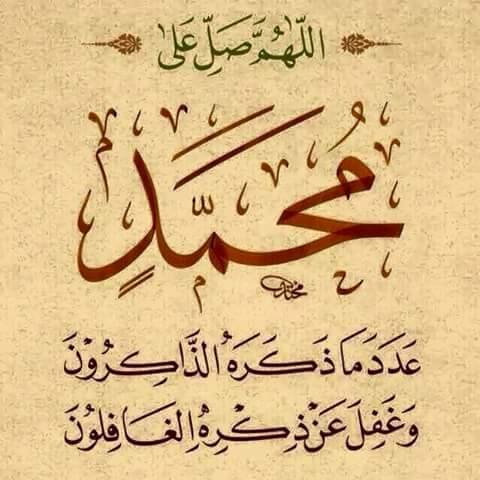 اللّٰهُمَّ صَلِّ عَلىٰ
مُحَمَّدٍ
عَدَدَ مَا ذَكَرَهُ الذَّاكِرُونَ
وَغَفِلَ عَنْ ذِكْرِهِ الغَافِلُونَ